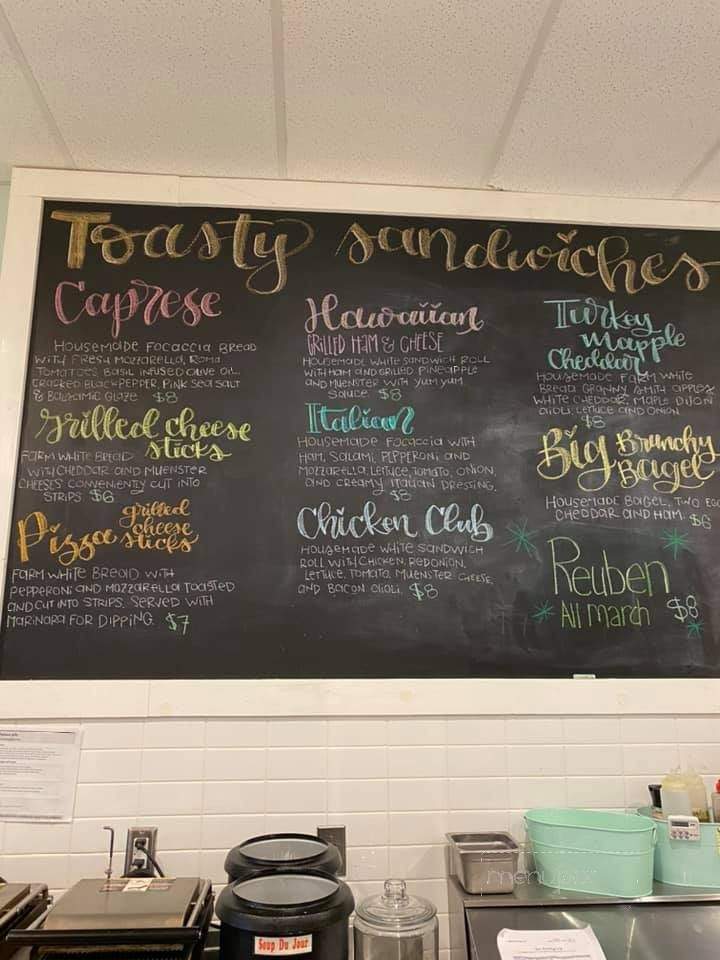 Toasty sandwiches
Caprese
Housemade Focaccia Bread
with Fresh Mozzarella, Roma
Tomatoes Basil infused olive oil
cracked black pepper, Pink sea salt
& Balsamic Glaze $8
grilled cheese
sticks
Farm white Bread
with cheddar and muenster
cheeses conveniently cut into
strips $6
Pizza grilled
cheese
sticks
Farm white Bread with
pepperoni and mozzarella toasted
and cut into strips. Served with
marinara for dipping. $7
Hawaiian
Grilled Ham & Cheese
Housemade white sandwich roll
with ham and grilled pineapple
and muenster with yum yum
sauce $8
Italian
Housemade Focaccia with
Ham, Salami, Pepperoni and
mozzarella, lettuce, tomato, onion,
and creamy Italian dressing.
$8
Chicken Club
Housemade white sandwich
roll with chicken, red onion,
lettuce, tomato, muenster cheese,
and bacon aioli. $8
Turkey
Mapple
Cheddar
Housemade Farm white
Bread Granny Smith apples
white cheddar, maple dijon
aioli, lettuce and onion
$8
Big Brunchy
Bagel
Housemade Bagel, two
cheddar and ham. $6
Reuben
All march $8
Soup Du Jour
menupix